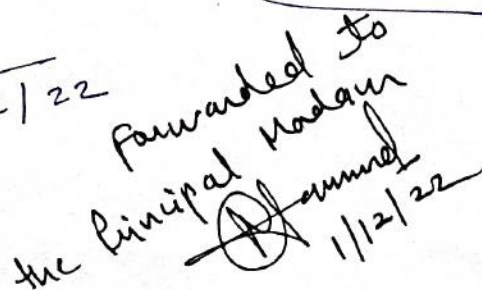 /22
Forwarded to
the Principal Madam
1/12/22